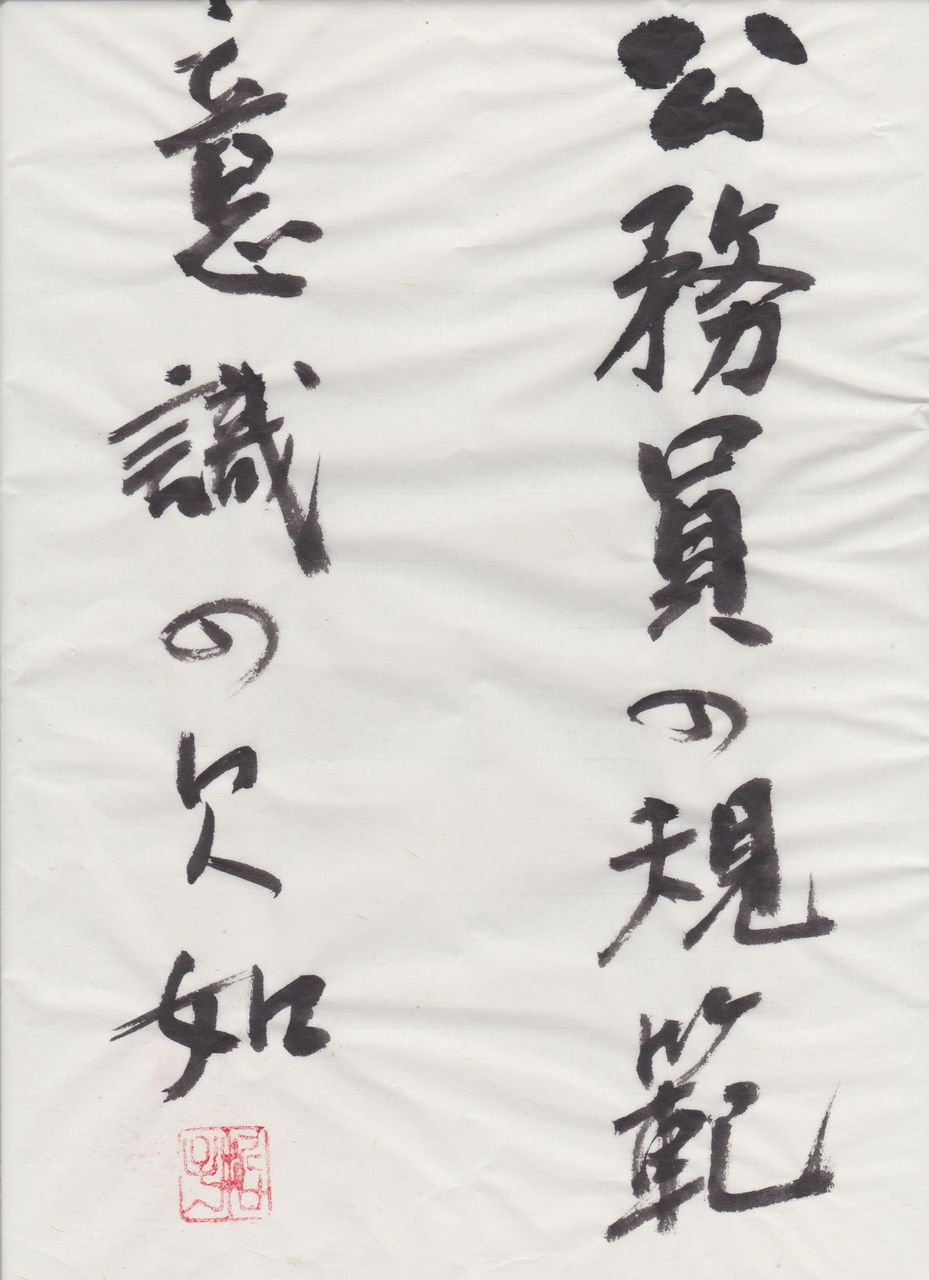 公務員の規範
意識の欠如